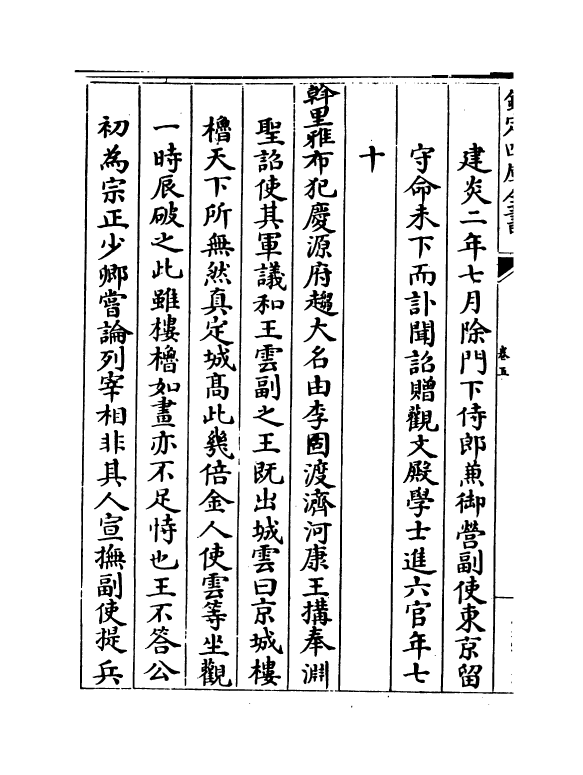 欽定四庫全書
卷五
建炎二年七月除門下侍郎兼御營副使東京留
守命未下而訃聞詔贈觀文殿學士進六官年七
十
斡里雅布犯慶源府趨大名由李固渡濟河康王搆奉淵
聖詔使其軍議和王雲副之王既出城雲曰京城樓
櫓天下所無然真定城髙此幾倍金人使雲等坐觀
一時辰破之此雖樓櫓如畫亦不足恃也王不答公
初為宗正少卿嘗論列宰相非其人宣撫副使提兵